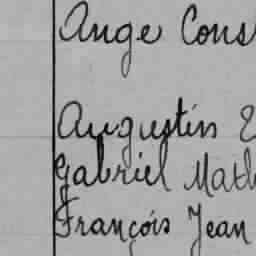 Ange Cons
Augustin
Gabriel Math
François Jean